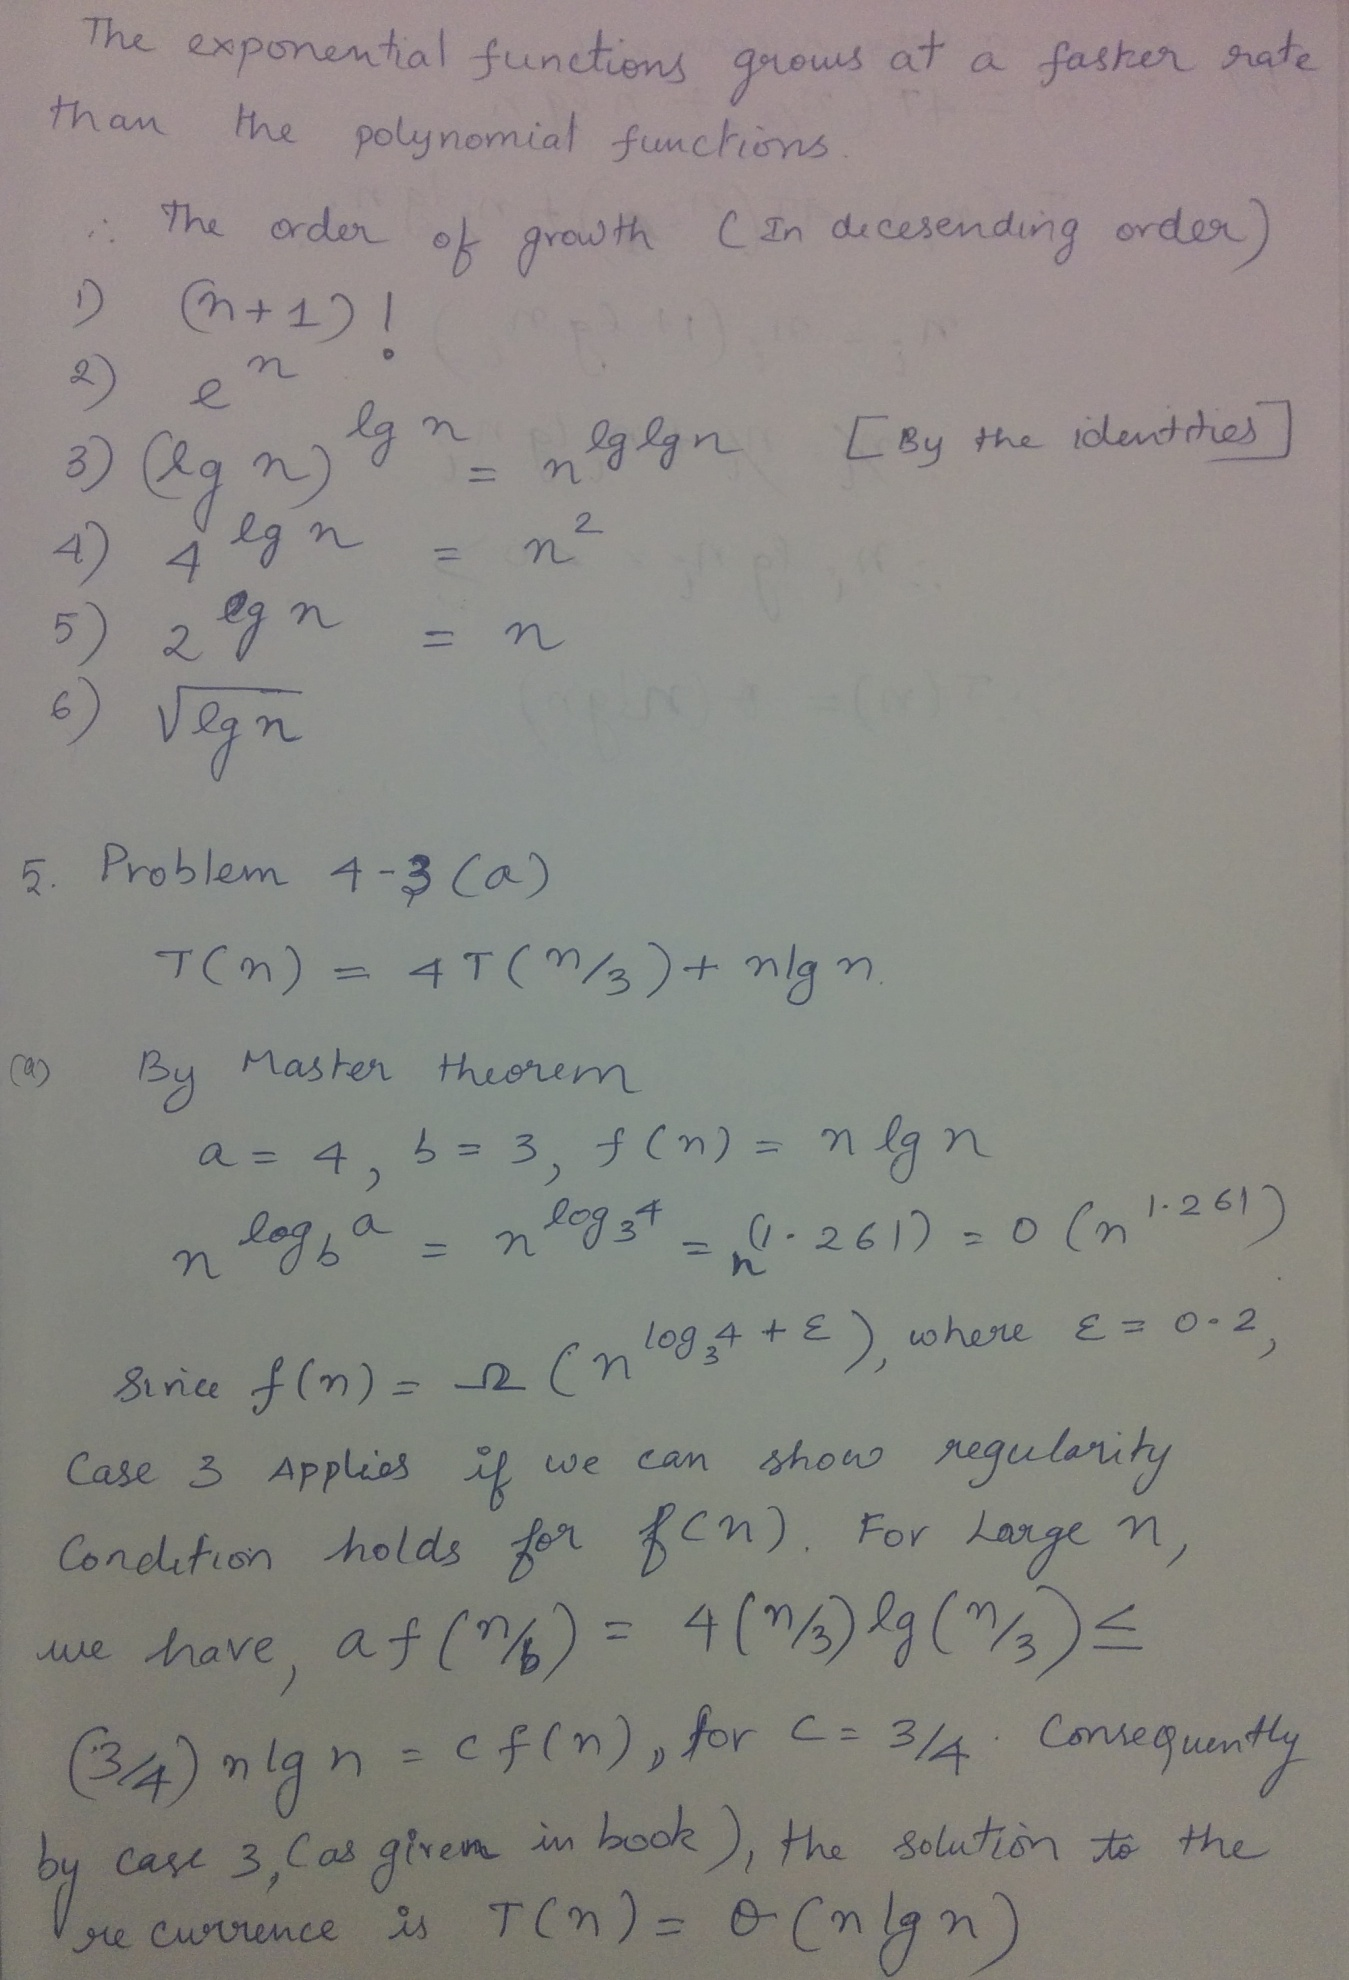 The exponential functions grows at a faster rate
than the polynomial functions.
∴ The order of growth (In decesending order)
1) (n+1)!
2) e^n
3) (lg n)^lg n = n^lglgn [By the identities]
4) 4^lg n = n^2
5) 2^lg n = n
6) √lgn
5. Problem 4-3 (a)
T(n) = 4T(n/3) + nlgn.
(a) By Master theorem
a = 4, b = 3, f(n) = n lg n
n^log_b a = n^log_3 4 = n^(1.261) = O(n^1.261)
Since f(n) = Ω (n^log_3 4 + ε), where ε = 0.2,
Case 3 Applies if we can show regularity
Condition holds for f(n). For Large n,
we have, af(n/b) = 4(n/3)lg(n/3) ≤
(3/4) nlgn = cf(n), for c = 3/4. Consequently
by case 3, (as given in book), the solution to the
recurrence is T(n) = θ(nlgn)